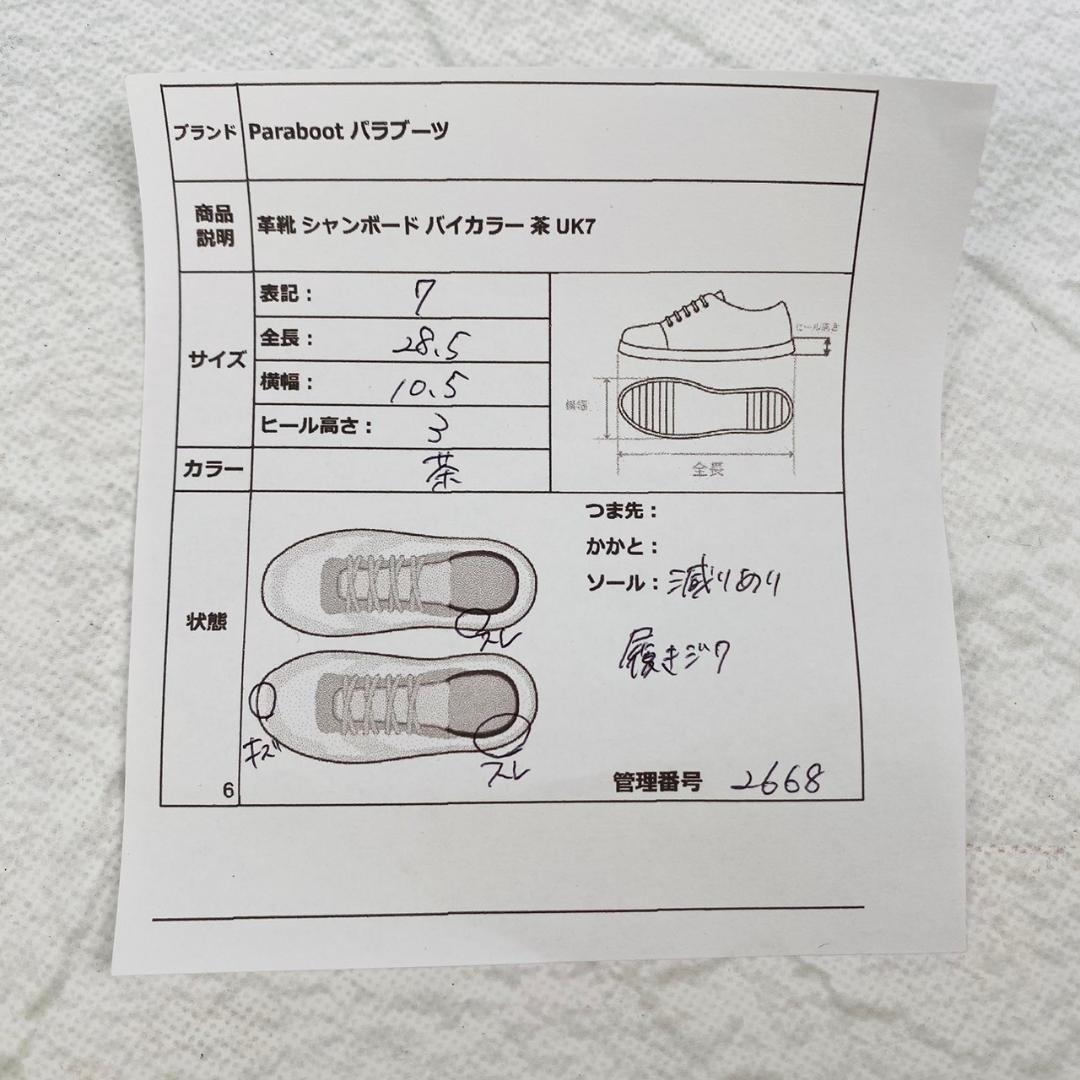 ブランド Paraboot パラブーツ
商品説明 革靴 シャンボード バイカラー 茶 UK7
サイズ
表記： 7
全長： 28.5
横幅： 10.5
ヒール高さ： 3
ヒール高さ
横幅
全長
カラー 茶
状態
つま先：
かかと：
ソール：減りあり
履きジワ
スレ
キズ
スレ
管理番号 2668
6